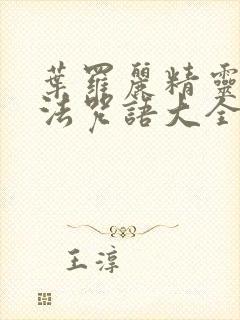 葉羅麗精靈
法咒語大全
王淳